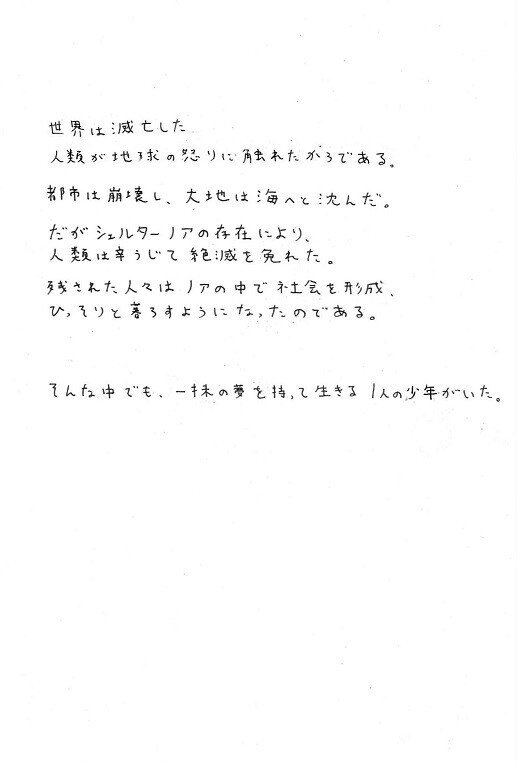 世界は滅亡した
人類が地球の怒りに触れたからである。
都市は崩壊し、大地は海へと沈んだ。
だがシェルターノアの存在により、
人類は辛うじて絶滅を免れた。
残された人々はノアの中で社会を形成、
ひっそりと暮らすようになったのである。
そんな中でも、一抹の夢を持って生きる1人の少年がいた。